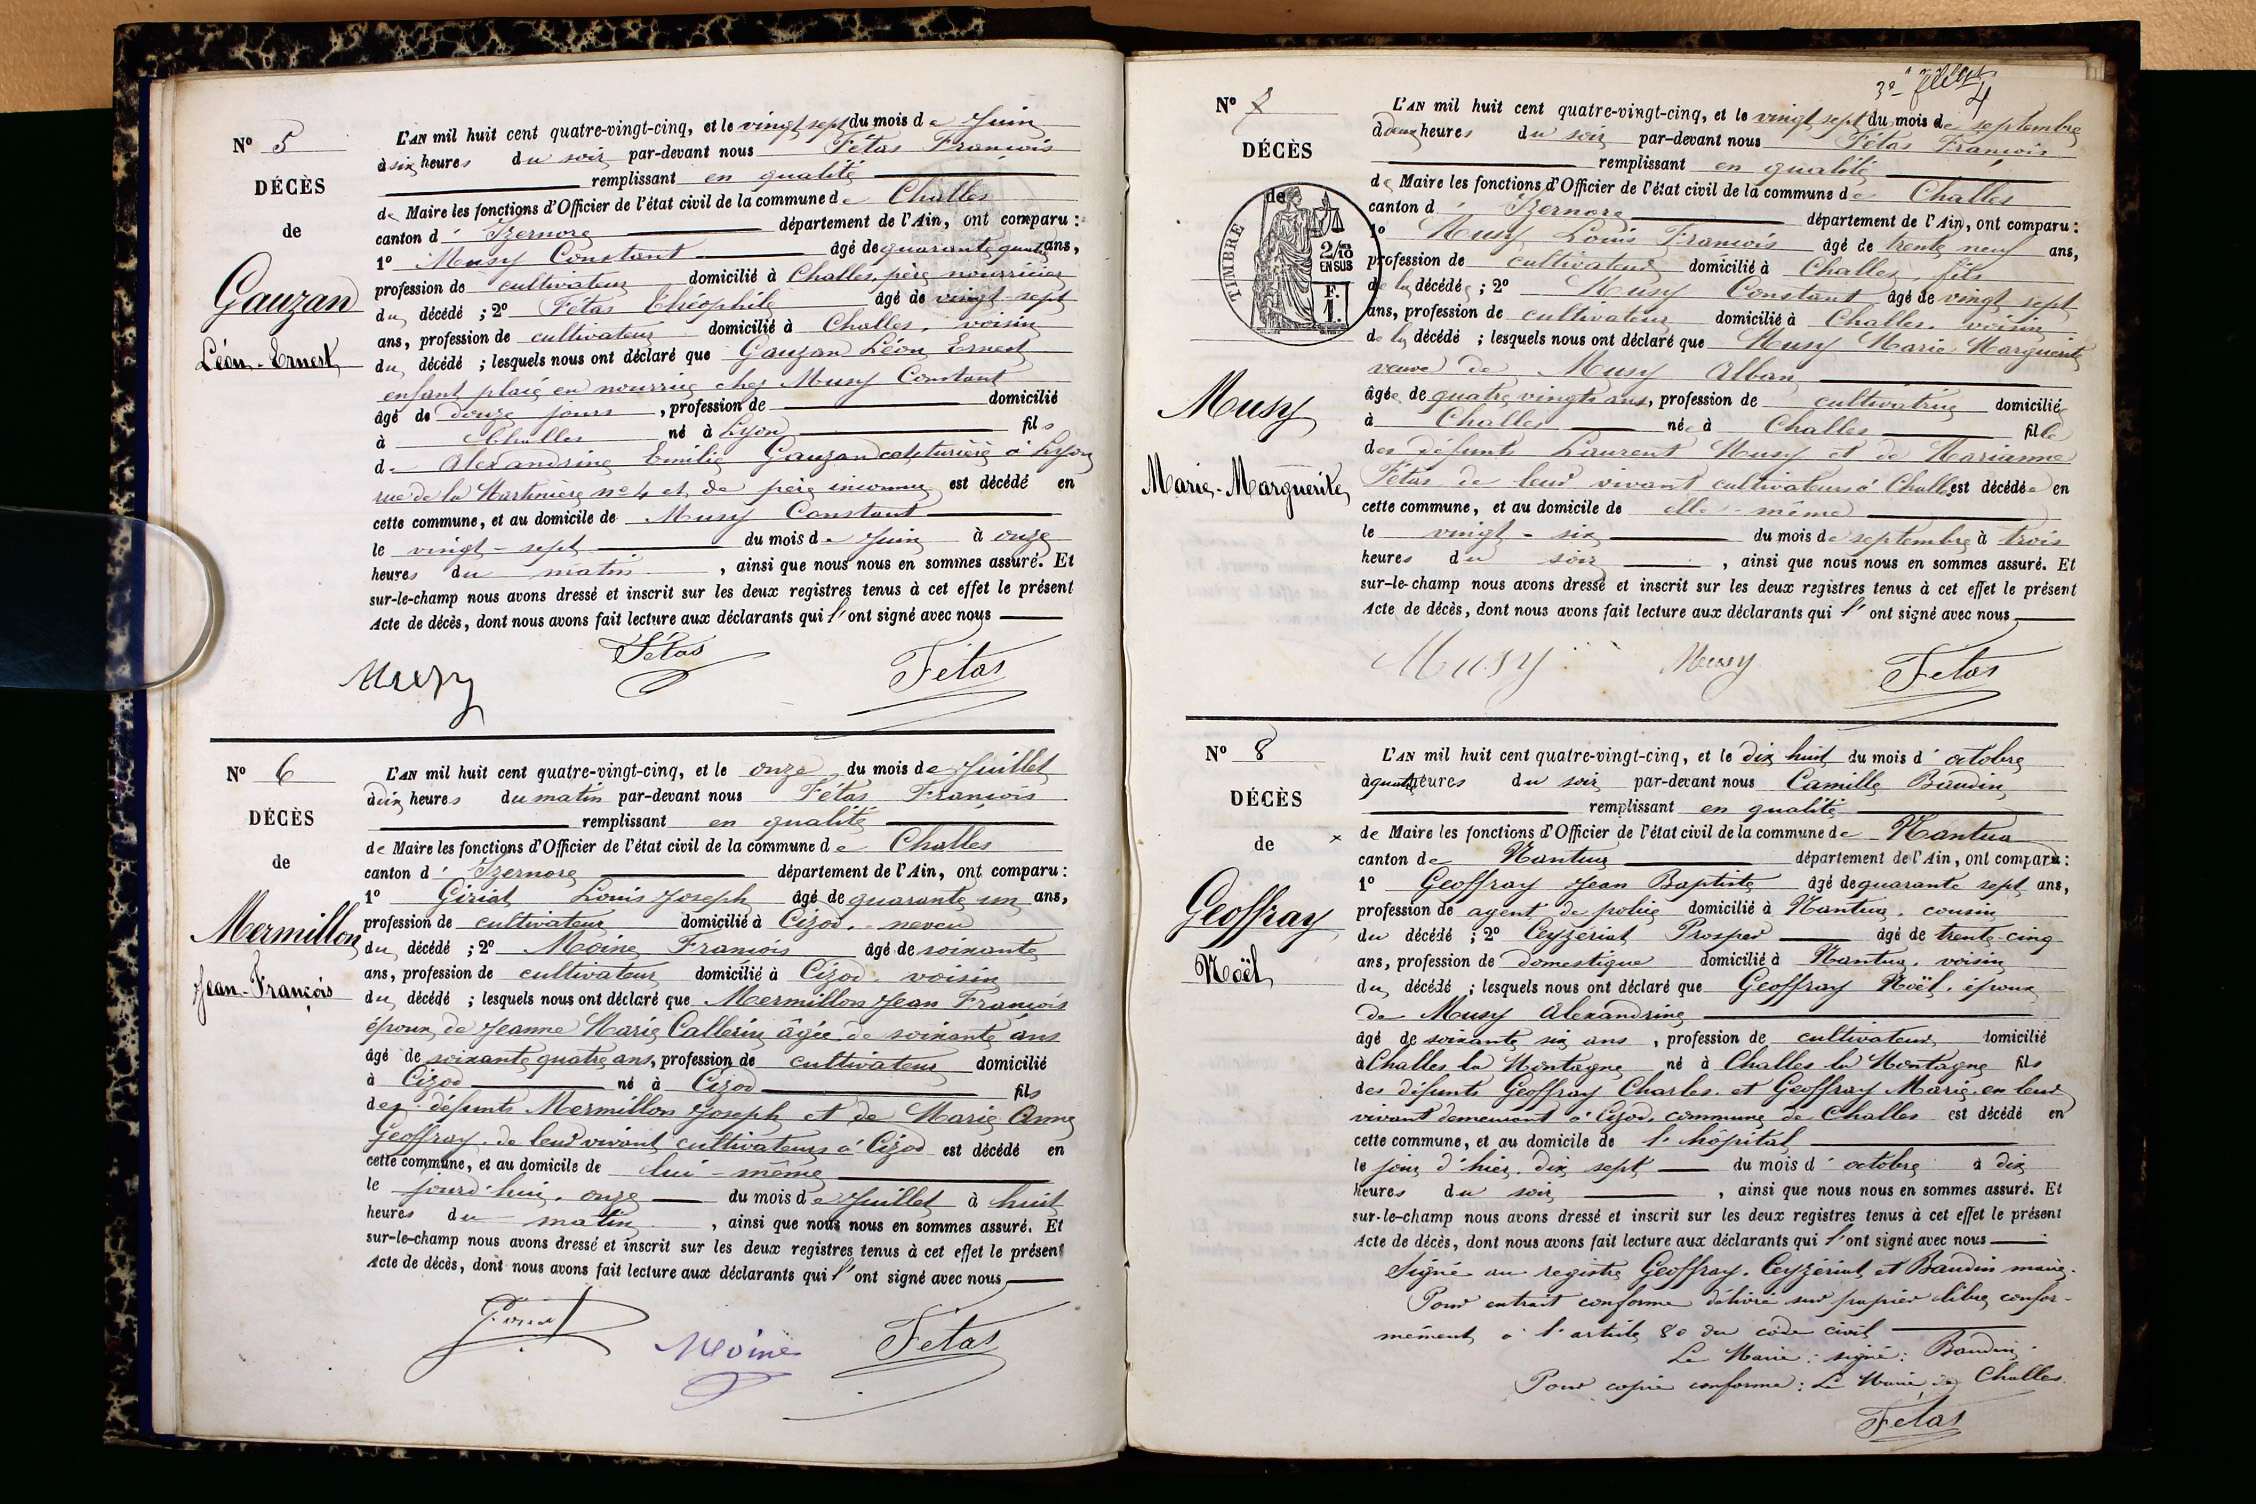 Nº 5
DÉCÈS
de
Gauzan
Léon-Ernest
L'AN mil huit cent quatre-vingt-cinq, et le vingt sept du mois de Juin
à six heures du soir par-devant nous Fétas François
remplissant en qualité
de Maire les fonctions d'Officier de l'état civil de la commune de Challes
canton d' Izernore département de l'Ain, ont comparu :
1º Musy Constant âgé de quarante quatre ans,
profession de cultivateur domicilié à Challes, père nourricier
du décédé ; 2º Fétas Théophile âgé de vingt-sept
ans, profession de cultivateur domicilié à Challes, voisin
du décédé ; lesquels nous ont déclaré que Gauzan Léon Ernest
enfant placé en nourrice chez Musy Constant
âgé de douze jours, profession de domicilié
à Challes né à Lyon fils
de Alexandrine Emilie Gauzan couturière à Lyon
rue de la Martinière nº 4 et de père inconnu est décédé en
cette commune, et au domicile de Musy Constant
le vingt-sept du mois de Juin à onze
heures du matin, ainsi que nous nous en sommes assuré. Et
sur-le-champ nous avons dressé et inscrit sur les deux registres tenus à cet effet le présent
Acte de décès, dont nous avons fait lecture aux déclarants qui l'ont signé avec nous
Musy Fétas Fétas
Nº 6
DÉCÈS
de
Mermillon
Jean-François
L'AN mil huit cent quatre-vingt-cinq, et le onze du mois de Juillet
à dix heures du matin par-devant nous Fétas François
remplissant en qualité
de Maire les fonctions d'Officier de l'état civil de la commune de Challes
canton d' Izernore département de l'Ain, ont comparu :
1º Giriat Louis Joseph âgé de quarante un ans,
profession de cultivateur domicilié à Cizod, neveu
du décédé ; 2º Moine François âgé de soixante
ans, profession de cultivateur domicilié à Cizod, voisin
du décédé ; lesquels nous ont déclaré que Mermillon Jean François
époux de Jeanne Marie Callerin âgée de soixante ans
âgé de soixante quatre ans, profession de cultivateur domicilié
à Cizod né à Cizod fils
des défunts Mermillon Joseph et de Marie Anne
Geoffray de leur vivant cultivateurs à Cizod est décédé en
cette commune, et au domicile de lui-même
le jourd'hui, onze du mois de Juillet à huit
heures du matin, ainsi que nous nous en sommes assuré. Et
sur-le-champ nous avons dressé et inscrit sur les deux registres tenus à cet effet le présent
Acte de décès, dont nous avons fait lecture aux déclarants qui l'ont signé avec nous
Giriat Moine Fétas
3e
4
Nº 7
DÉCÈS
de
TIMBRE
2/10
EN SUS
F.
1.
Musy
Marie-Marguerite
L'AN mil huit cent quatre-vingt-cinq, et le vingt sept du mois de septembre
à deux heures du soir par-devant nous Fétas François
remplissant en qualité
de Maire les fonctions d'Officier de l'état civil de la commune de Challes
canton d' Izernore département de l'Ain, ont comparu :
1º Musy Louis François âgé de trente neuf ans,
profession de cultivateur domicilié à Challes, fils
de la décédée ; 2º Musy Constant âgé de vingt sept
ans, profession de cultivateur domicilié à Challes, voisin
de la décédé ; lesquels nous ont déclaré que Musy Marie Marguerite
veuve de Musy Alban
âgée de quatre vingts ans, profession de cultivatrice domiciliée
à Challes née à Challes fille
des défunts Laurent Musy et de Marianne
Fétas de leur vivant cultivateurs à Challes est décédée en
cette commune, et au domicile de elle-même
le vingt-six du mois de septembre à trois
heures du soir, ainsi que nous nous en sommes assuré. Et
sur-le-champ nous avons dressé et inscrit sur les deux registres tenus à cet effet le présent
Acte de décès, dont nous avons fait lecture aux déclarants qui l'ont signé avec nous
Musy Musy Fetas
Nº 8
DÉCÈS
de
Geoffray
Noël
L'AN mil huit cent quatre-vingt-cinq, et le dix huit du mois d'octobre
à quatre heures du soir par-devant nous Camille Baudin
remplissant en qualité
x de Maire les fonctions d'Officier de l'état civil de la commune de Nantua
canton de Nantua département de l'Ain, ont comparu :
1º Geoffray Jean Baptiste âgé de quarante sept ans,
profession de agent de police domicilié à Nantua, cousin
du décédé ; 2º Ceyzériat Prosper âgé de trente-cinq
ans, profession de domestique domicilié à Nantua, voisin
du décédé ; lesquels nous ont déclaré que Geoffray Noël, époux
de Musy Alexandrine
âgé de soixante six ans, profession de cultivateur domicilié
à Challes la Montagne né à Challes la Montagne fils
des défunts Geoffray Charles et Geoffray Marie, en leur
vivant demeurant à Cizod, commune de Challes est décédé en
cette commune, et au domicile de l'hôpital
le jour d'hier, dix sept du mois d'octobre à dix
heures du soir, ainsi que nous nous en sommes assuré. Et
sur-le-champ nous avons dressé et inscrit sur les deux registres tenus à cet effet le présent
Acte de décès, dont nous avons fait lecture aux déclarants qui l'ont signé avec nous
Signé au registre Geoffray, Ceyzériat et Baudin maire.
Pour extrait conforme délivré sur papier libre, confor-
mément à l'article 80 du code civil
Le Maire : signé : Baudin
Pour copie conforme : Le Maire de Challes.
Fetas